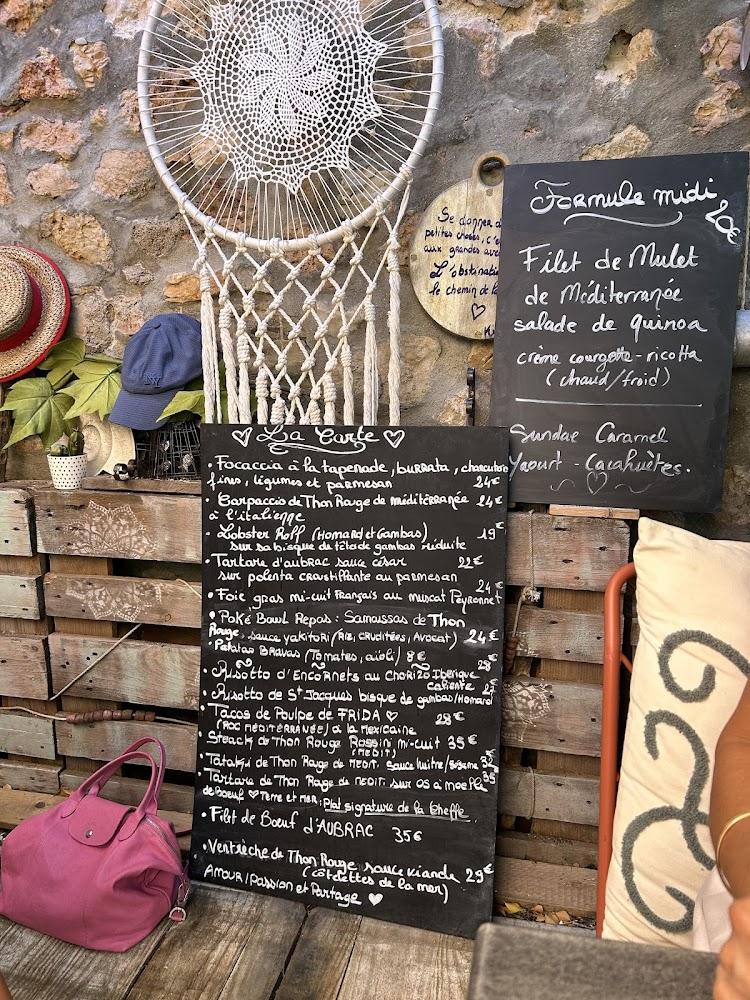 Formule midi 20€
Filet de Mulet
de Méditerranée
salade de quinoa
crème courgette-ricotta
(chaud/froid)
Sundae Caramel
Yaourt - Cacahuètes.
Se donner d
petites choses, c'e
aux grandes ave
L'obstinati
le chemin de l
NY
La Carte
• Focaccia à la tapenade, burrata, charcuterie
fines, légumes et parmesan 24€
• Carpaccio de Thon Rouge de méditérranée 24€
à l'italienne
• Lobster Roll (Homard et Gambas) 19€
sur sa bisque de tête de gambas réduite
• Tartare d'aubrac sauce césar 22€
sur polenta croustillante au parmesan
• Foie gras mi-cuit Français au muscat Peyronnet 24€
• Poké Bowl Repas: Samossas de Thon
Rouge, sauce yakitori/Riz, crudités, Avocat) 24€
• Patatas Bravas (Tomates, aïoli) 8€
• Risotto d'Encornets au Chorizo Iberique 28€
caliente
• Risotto de St Jacques bisque de gambas/Homard
• Tacos de Poulpe de FRIDA 28€
(ROC MEDITERRANÉE) à la Mexicaine
• Steack de Thon Rouge Rossini mi-cuit 35€
(MEDIT)
• Tataki de Thon Rouge de MEDIT. sauce huitre/sesame
• Tartare de Thon Rouge de MEDIT. sur os à moelle 35
de Boeuf Terre et MER: Plat signature de la Cheffe.
• Filet de Boeuf d'AUBRAC 35€
• Ventrèche de Thon Rouge sauce viande 29€
(Côtelettes de la mer)
Amour, Passion et Partage